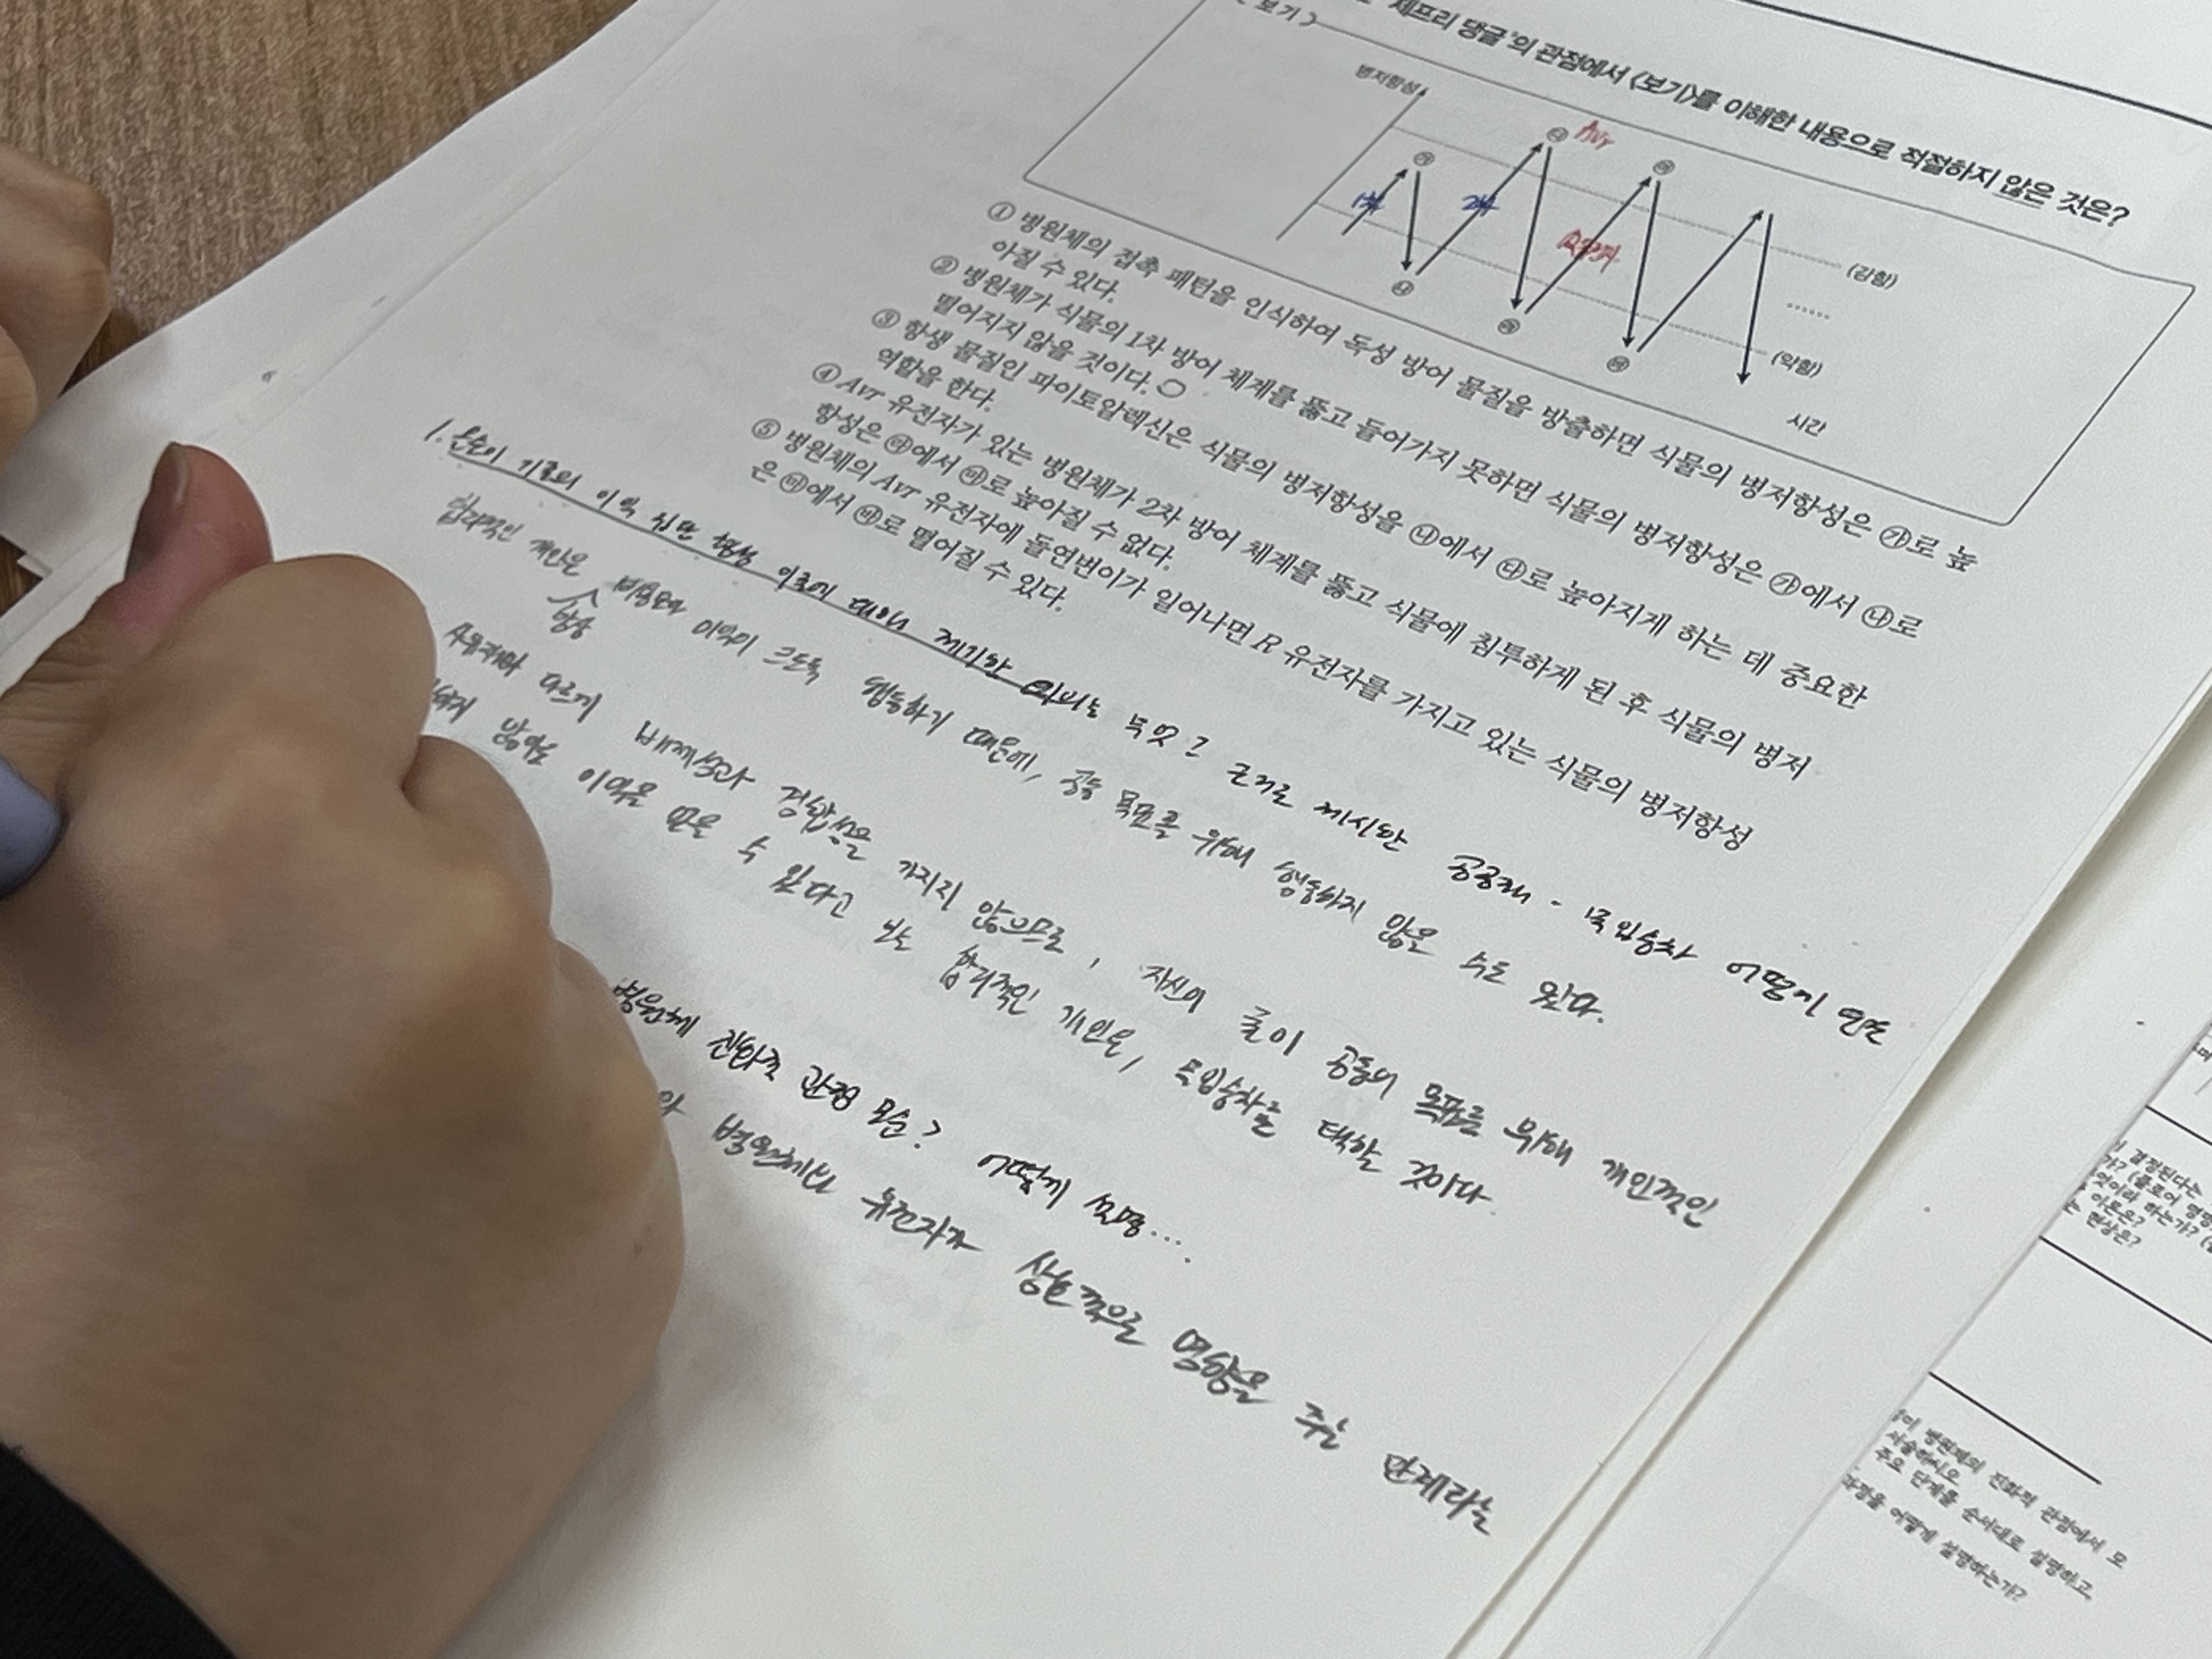 제프리 댕글'의 관점에서 <보기>를 이해한 내용으로 적절하지 않은 것은?
보기 >
병저항성
㉮
㉰
Avr
㉲
1차
2차
(강함)
㉯
㉱
㉳
(약함)
시간
① 병원체의 접촉 패턴을 인식하여 독성 방어 물질을 방출하면 식물의 병저항성은 ㉮로 높
아질 수 있다.
② 병원체가 식물의 1차 방어 체계를 뚫고 들어가지 못하면 식물의 병저항성은 ㉮에서 ㉯로
떨어지지 않을 것이다. ○
③ 항생 물질인 파이토알렉신은 식물의 병저항성을 ㉯에서 ㉰로 높아지게 하는 데 중요한
역할을 한다.
④ Avr 유전자가 있는 병원체가 2차 방어 체계를 뚫고 식물에 침투하게 된 후 식물의 병저
항성은 ㉱에서 ㉲로 높아질 수 없다.
⑤ 병원체의 Avr 유전자에 돌연변이가 일어나면 R 유전자를 가지고 있는 식물의 병저항성
은 ㉲에서 ㉳로 떨어질 수 있다.
1. 올슨이 기존의 이익 집단 형성 이론에 대해 제기한 의의는 무엇? 근거로 제시한 공공재 - 무임승차 어떻게 연관
합리적인 개인은 항상 비용보다 이익이 크도록 행동하기 때문에, 공동 목표를 위해 행동하지 않을 수도 있다.
사유재와 다르게 배제성과 경합성을 가지지 않으므로, 자신의 몫이 공동의 목표를 위해 개인적인
않아도 이익을 얻을 수 있다고 보는 합리적인 개인은, 무임승차를 택할 것이다.
병원체 진화적 관점 모순? 어떻게 설명...
병원체의 유전자가 상호적으로 영향을 주는 단계라는
결정된다는
가? (플로어 명명
무엇이라 하는가?
는 이론은?
는 현상은?
병원체의 진화적 관점에서 모
서술하시오
주요 단계를 순서대로 설명하고,
과정을 어떻게 설명하는가?